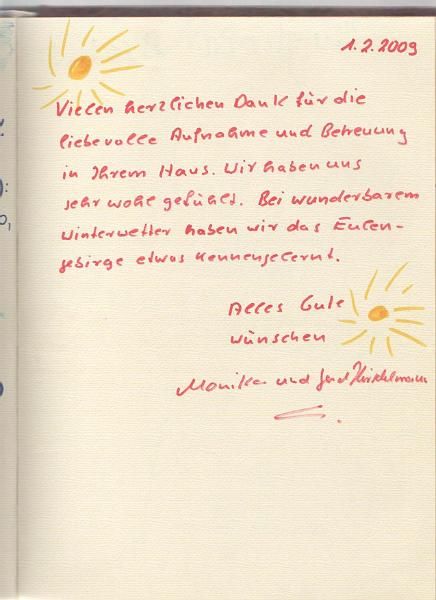 1.2.2009
Vielen herzlichen Dank für die
liebevolle Aufnahme und Betreuung
in Ihrem Haus. Wir haben uns
sehr wohl gefühlt. Bei wunderbarem
Winterwetter haben wir das Eulen-
gebirge etwas kennengelernt.
Alles Gute
wünschen
Monika und